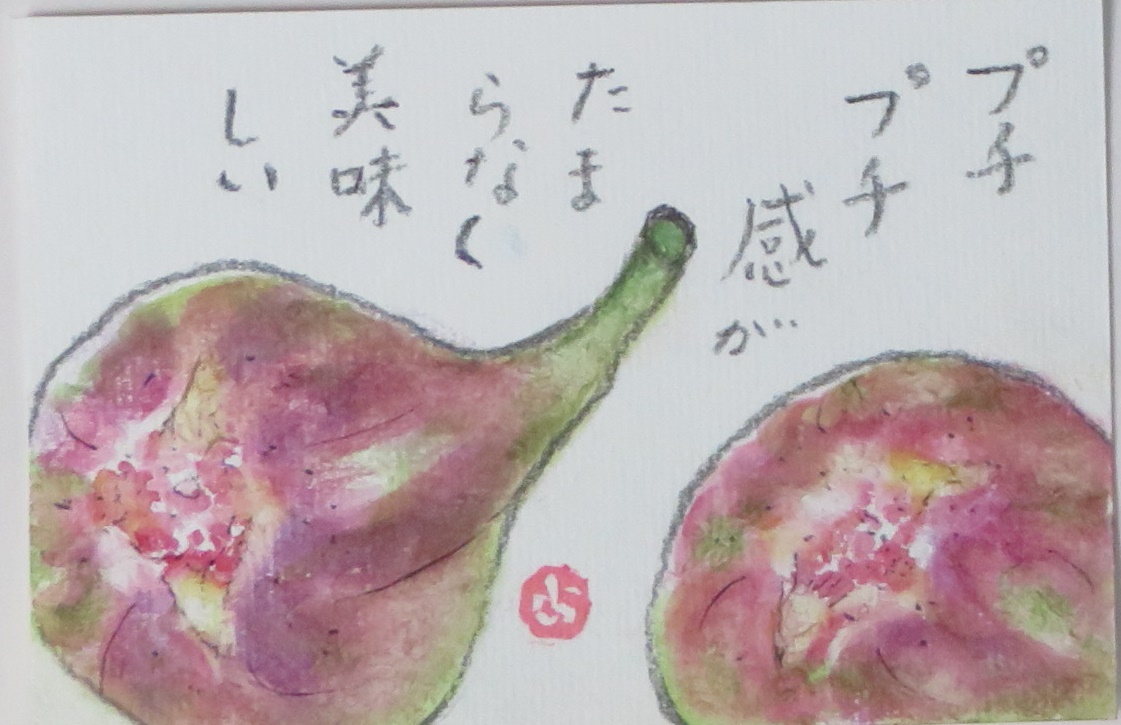 プチ
プチ
感が
たま
らなく
美味
しい